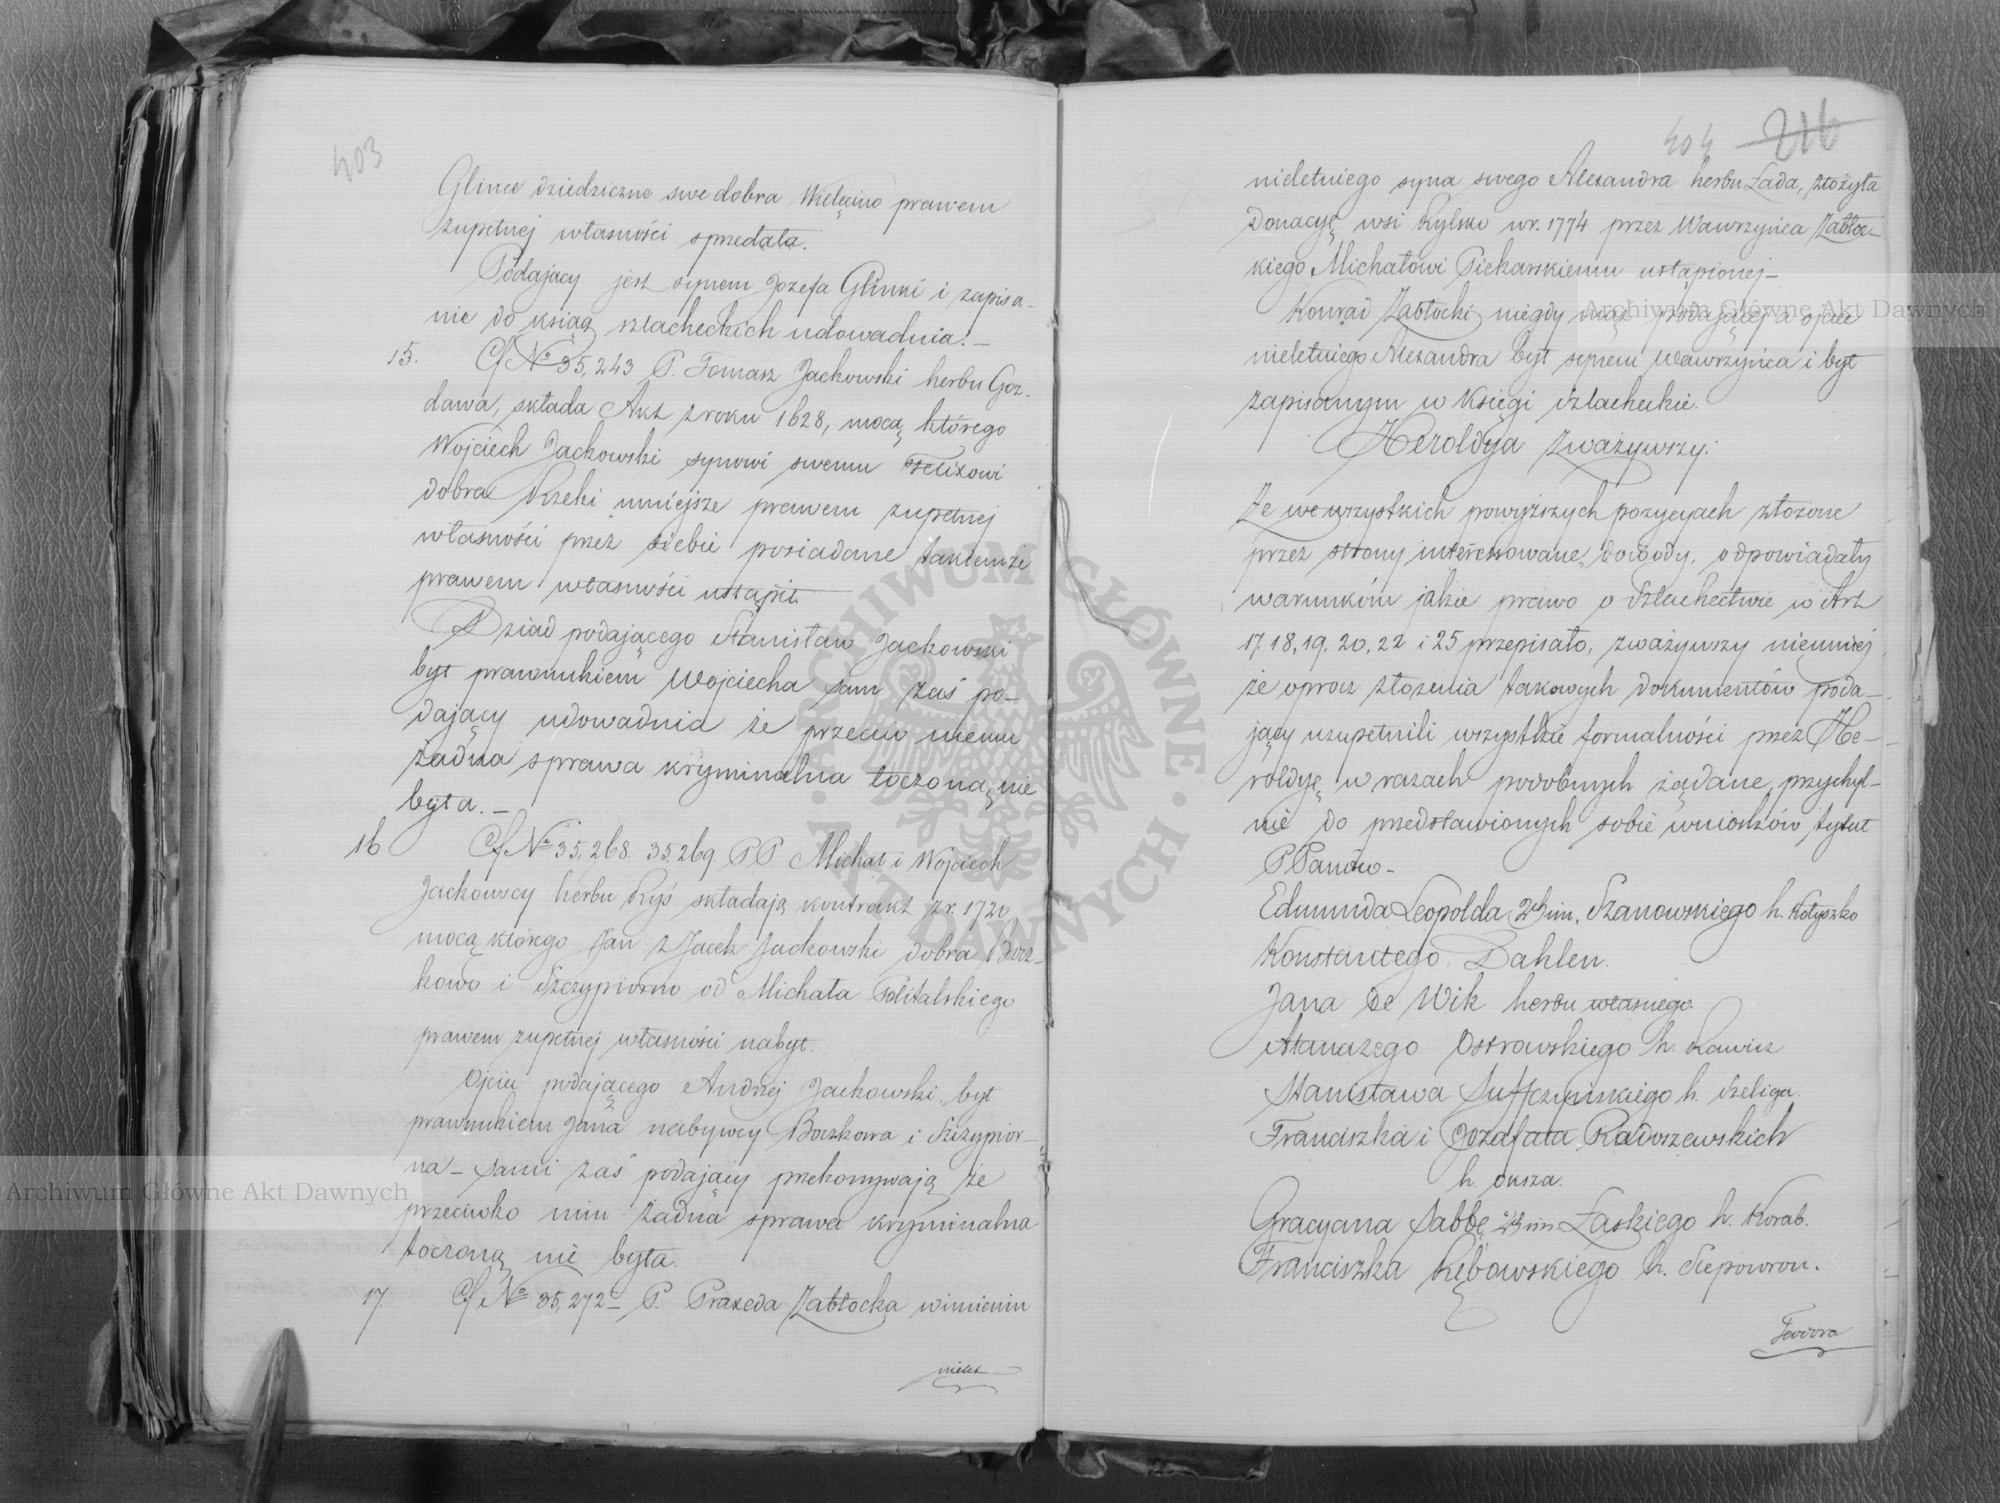 403
Glince dziedziczne swe dobra Wielęcino prawem
zupełnej własności sprzedała.
Podający jest synem Jozefa Glinki i zapisa-
nie do ksiąg szlacheckich udowadnia.—
15. Cf No 35,243 P. Tomasz Jackowski herbu Goz-
dawa, składa Akt z roku 1628, mocą którego
Wojciech Jackowski synowi swemu Felixowi
dobra Rzeki mniejsze prawem zupełnej
własności przez siebie posiadane takiemże
prawem własności ustąpił.
Dziad podającego Stanisław Jackowski
był prawnukiem Wojciecha sam zaś po-
dający udowadnia że przeciw niemu
żadna sprawa kryminalna toczoną nie
była.—
16 Cf No 35,268. 35,269 PP Michał i Wojciech
Jackowscy herbu Ryś składają kontrakt z r. 1720
mocą którego Jan z Jacek Jackowski dobra Bocz-
kowo i Szczypiorno od Michała Politalskiego
prawem zupełnej własności nabył.
Ojciec podającego Andrzej Jackowski był
prawnukiem Jana nabywcy Boczkowa i Szczypior-
na— sami zaś podający przekonywają że
przeciwko nim żadna sprawa kryminalna
toczoną nie była.
17. Cf No 35,272— P. Praxeda Zabłocka w imieniu
nielet—
404 216
nieletniego syna swego Alexandra herbu Łada, złożyła
Donacyę wsi Rylsko w r. 1774 przez Wawrzyńca Zabłoc-
kiego Michałowi Piekarskiemu ustąpionej—
Konrad Zabłocki niegdy mąż podającej a ojciec
nieletniego Alexandra był synem Wawrzyńca i był
zapisanym w Księgi Szlacheckie.
Heroldya zważywszy:
Że we wszystkich powyższych pozycyach złożone
przez strony interessowane, dowody, odpowiadały
warunkom jakie prawo o Szlachectwie w Art
17. 18, 19. 20, 22 i 25 przepisało, zważywszy niemniej
że oprocz złożenia takowych dokumentów poda-
jący uzupełnili wszystkie formalności przez He-
roldyę w razach podobnych żądane, przychyl-
nie do przedstawionych sobie wniosków, tytuł
PPanów—
Edmunda Leopolda 2ch im. Szanowskiego h. Kotyszko
Konstantego Dahlen.
Jana de Wik herbu własnego.
Atanazego Ostrowskiego h. Rawicz
Stanisława Suffczyńskiego h. Szeliga.
Franciszka i Jozafata Radoszewskich
h. Oksza.
Gracyana Sabbę 2ch im Łaskiego h. Korab.
Franciszka Kębowskiego h. Slepowron.
Teodora
Archiwum Główne Akt Dawnych
Archiwum Główne Akt Dawnych
ARCHIWUM GŁÓWNE · AKT DAWNYCH ·